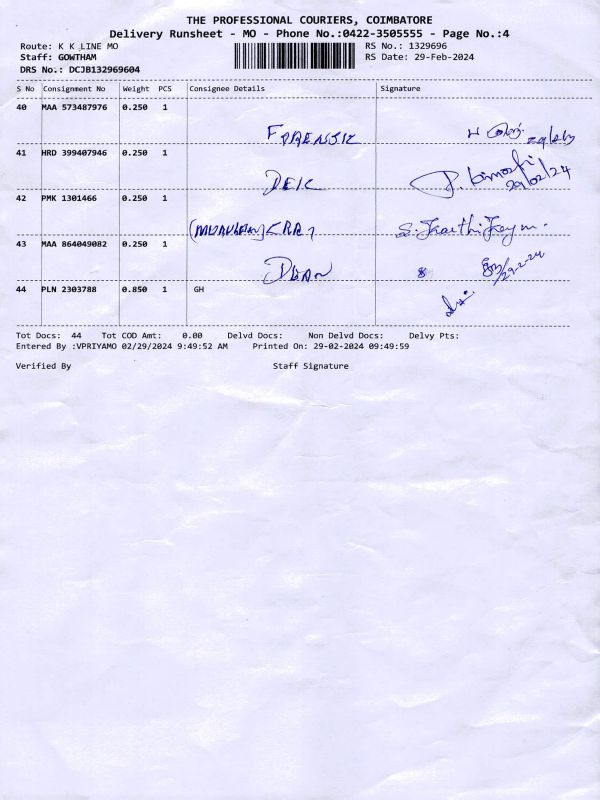 THE PROFESSIONAL COURIERS, COIMBATORE
Delivery Runsheet - MO - Phone No.:0422-3505555 - Page No.:4
Route: K K LINE MO RS No.: 1329696
Staff: GOWTHAM RS Date: 29-Feb-2024
DRS No.: DCJB132969604
S No Consignment No Weight PCS Consignee Details Signature
40 MAA 573487976 0.250 1
FORENSIC
41 HRD 399407946 0.250 1
DEIC 29/02/24
42 PMK 1301466 0.250 1
43 MAA 864049082 0.250 1
DEAN 29-2-24
44 PLN 2303788 0.850 1 GH
Tot Docs: 44 Tot COD Amt: 0.00 Delvd Docs: Non Delvd Docs: Delvy Pts:
Entered By :VPRIYAMO 02/29/2024 9:49:52 AM Printed On: 29-02-2024 09:49:59
Verified By Staff Signature